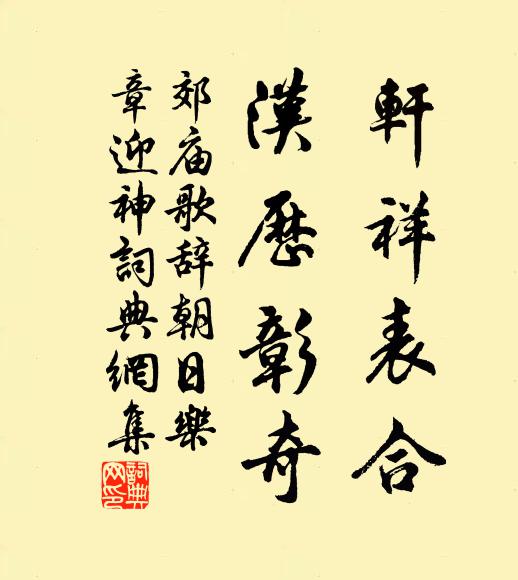 軒祥表合
漢歷彰奇
郊庙歌辞朝日樂
章迎神詞典網集
詞典网印